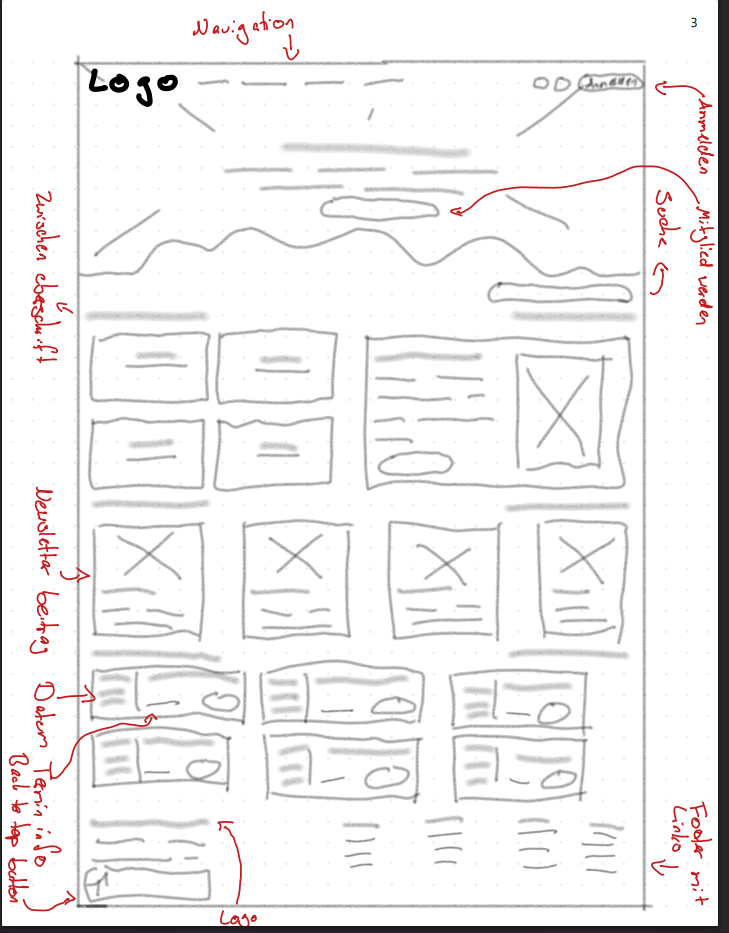 3
Navigation
Logo
Anmelden
Anmelden
Mitglied werden
Suche
Zwischen überschrift
Newsletter beitrag
Datum
Termin info
Back to top button
Logo
Footer mit
Links